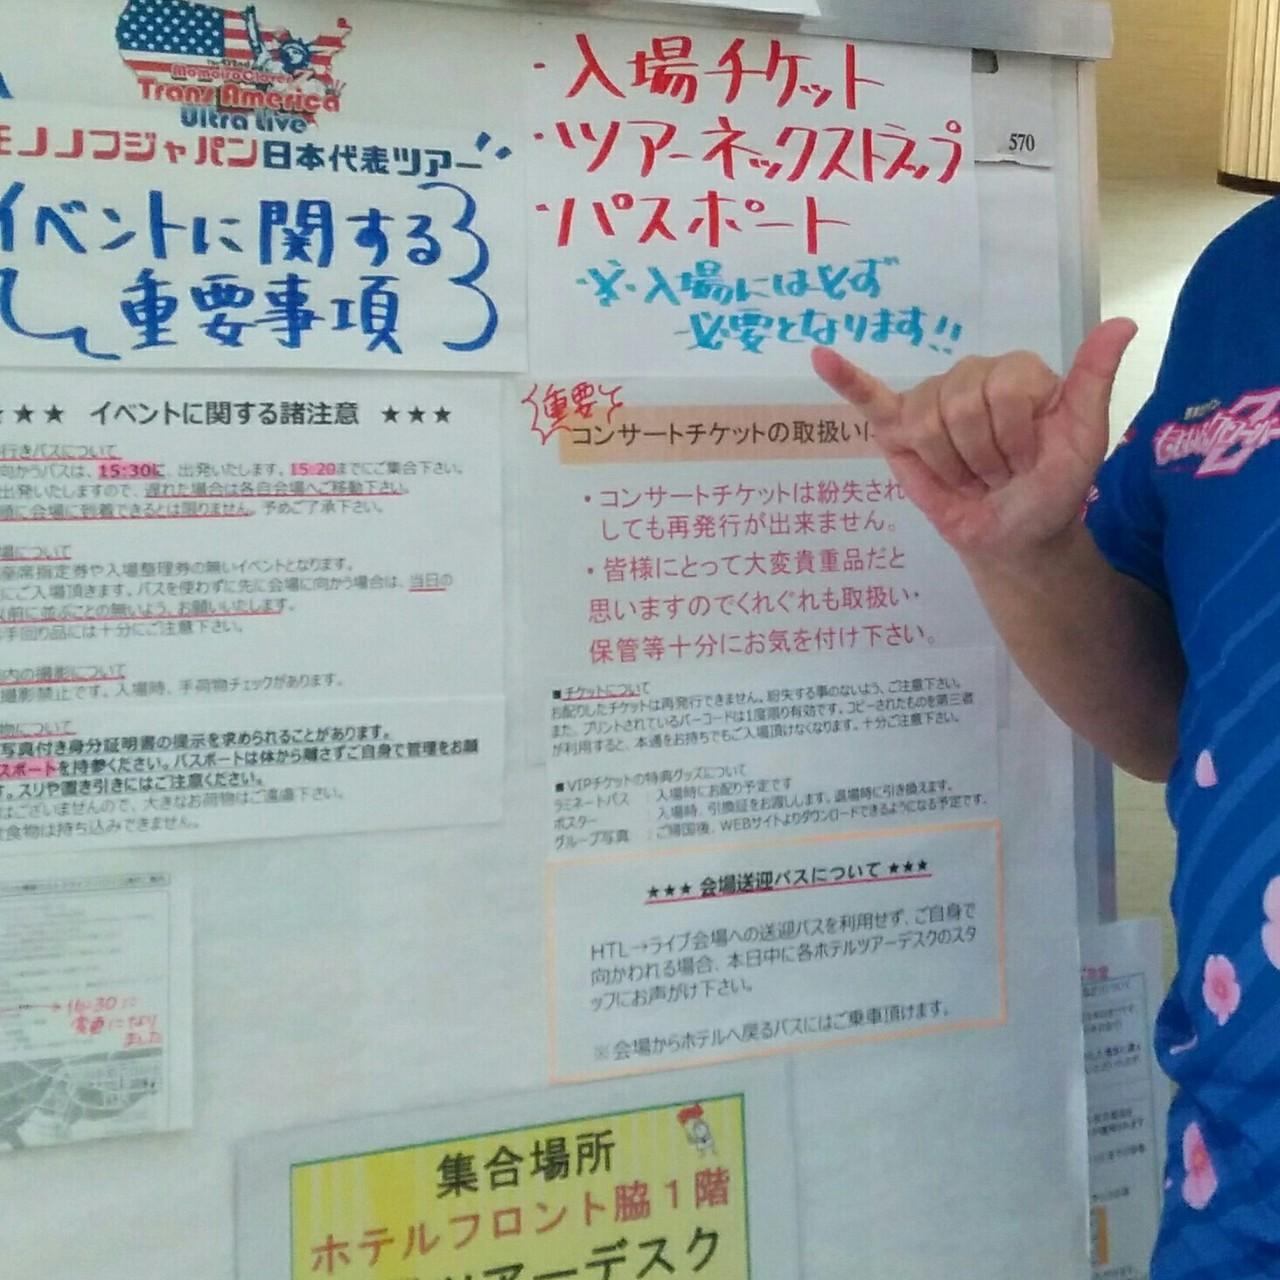 Momoiro Clover
Trans America
Ultra Live
モノノフジャパン日本代表ツアー
イベントに関する
重要事項
・入場チケット
・ツアーネックストラップ
・パスポート
※・入場にはひず
必要となります!!
570
★★★ イベントに関する諸注意 ★★★
行きバスについて
向かうバスは、15:30に、出発いたします。15:20までにご集合下さい。
出発いたしますので、遅れた場合は各自会場へご移動下さい。
頭に会場に到着できるとは限りません。予めご了承下さい。
場について
座席指定券や入場整理券の無いイベントとなります。
にご入場頂きます。バスを使わずに先に会場に向かう場合は、当日の
以前に並ぶことの無いよう、お願いいたします。
お手回り品には十分にご注意下さい。
内の撮影について
撮影禁止です。入場時、手荷物チェックがあります。
物について
写真付き身分証明書の提示を求められることがあります。
スポートを持参ください。パスポートは体から離さずご自身で管理をお願
す。スリや置き引きにはご注意ください。
はございませんので、大きなお荷物はご遠慮下さい。
飲食物は持ち込みできません。
重要
コンサートチケットの取扱いに
・コンサートチケットは紛失され
しても再発行が出来ません。
・皆様にとって大変貴重品だと
思いますのでくれぐれも取扱い・
保管等十分にお気を付け下さい。
■チケットについて
お配りしたチケットは再発行できません。紛失する事のないよう、ご注意下さい。
また、プリントされているバーコードは1度限り有効です。コピーされたものを第三者
が利用すると、本通をお持ちでもご入場頂けなくなります。十分ご注意下さい。
■VIPチケットの特典グッズについて
ラミネートパス : 入場時にお配り予定です
ポスター : 入場時、引換証をお渡しします。退場時に引き換えます。
グループ写真 : ご帰国後、WEBサイトよりダウンロードできるようになる予定です。
★★★ 会場送迎バスについて ★★★
HTL→ライブ会場への送迎バスを利用せず、ご自身で
向かわれる場合、本日中に各ホテルツアーデスクのスタ
ッフにお声がけ下さい。
※会場からホテルへ戻るバスにはご乗車頂けます。
16:30に
変更になり
ました
集合場所
ホテルフロント脇1階
ツアーデスク
ももいろクローバーZ